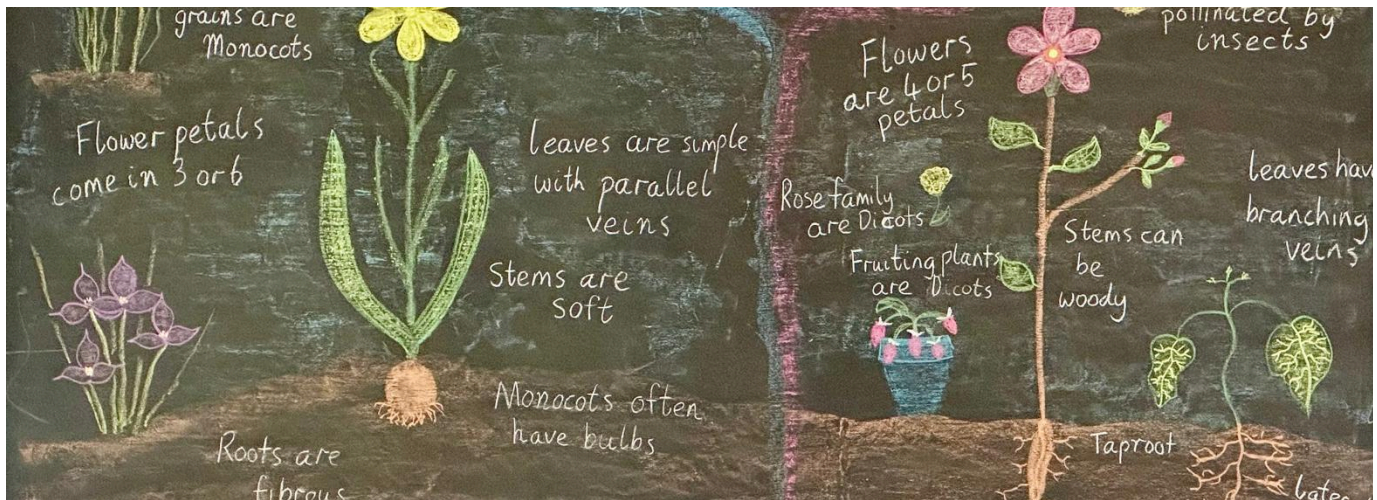 grains are
Monocots
Flower petals
come in 3 or 6
leaves are simple
with parallel
veins
Stems are
soft
Monocots often
have bulbs
Roots are
fibrous
pollinated by
insects
Flowers
are 4 or 5
petals
Rose family
are Dicots
Fruiting plants
are Dicots
Stems can
be
woody
leaves hav
branching
veins
Taproot